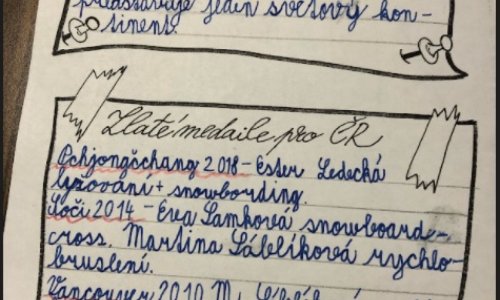 představuje jeden světový kon-
tinent.
Zlaté medaile pro ČR
Pchjongčchang 2018 - Ester Ledecká
lyžování + snowbording.
Soči 2014 - Eva Samková snowboarde-
cross. Martina Sáblíková rychlo-
bruslení.
Vancouver 2010 M.